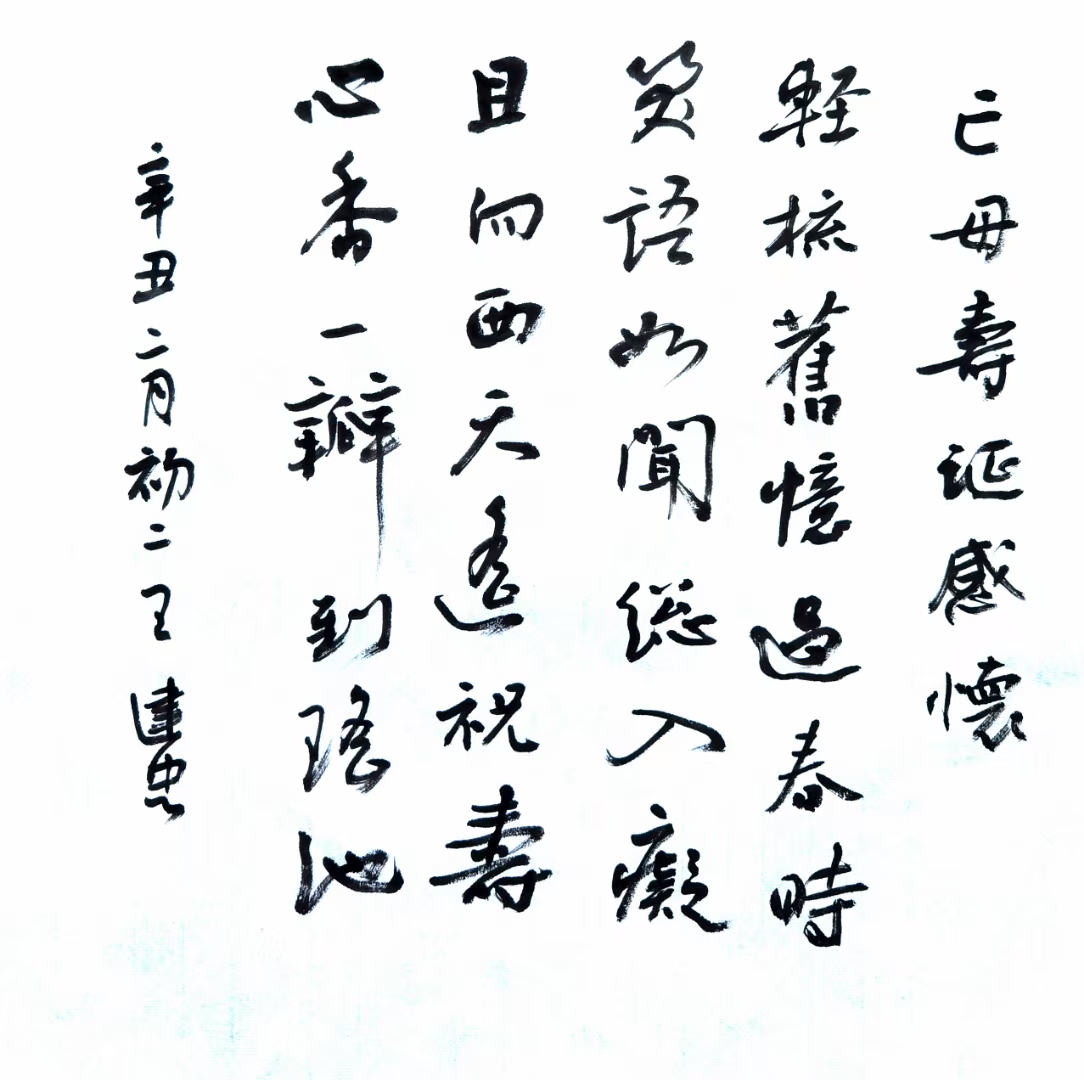 亡母壽诞感懷
軽梳舊憶過春時
笑語如聞総入癡
且向西天遙祝壽
心香一瓣到瑤池
辛丑二月初二王建忠